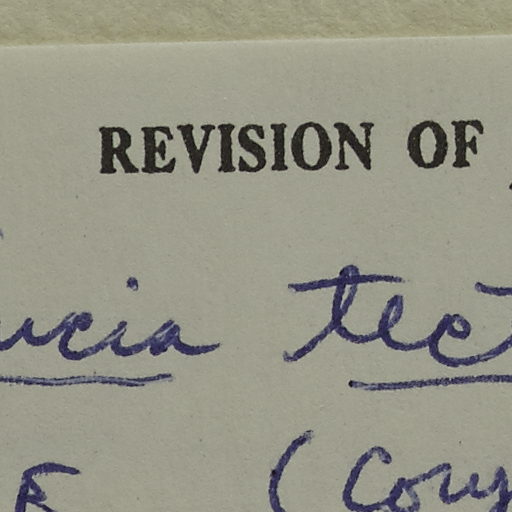 REVISION OF
ucia tect
E (Cory